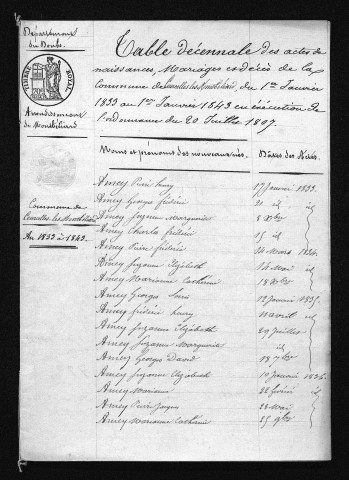 Département
du Doubs.
TIMBRE ROYAL
Arrondissement
de Montbéliard
Commune de
Courcelles les Montbéliard
An 1833 à 1843.
Table décennale des actes de
naissances, Mariages et décès de la
Commune de Courcelles les Montbéliard, du 1er Janvier
1833 au 1er Janvier 1843 en exécution de
l'ordonnance du 20 Juillet 1807.
Noms et prénoms des nouveaux nés. Dates des Actes.
Amey Pierre henry 17 Janvier 1833.
Amey George fréderic 21 id id
Amey Suzanne Marguerite 8 id
Amey Charles fréderic 15 id
Amey Pierre fréderic 14 Mars 1834.
Amey Suzanne Elizabeth 14 Mai id
Amey Marianne Catherine 18 id
Amey George Louis 12 Janvier 1835.
Amey fréderic henry 11 avril id
Amey Suzanne Elizabeth 29 Juillet
Amey Suzanne Marguerite id
Amey George David 18 7bre
Amey Suzanne Elizabeth 10 Janvier 1836.
Amey Marianne 22 février id
Amey Pierre Jacques 28 Mai
Amey Marianne Catherine 25 9bre